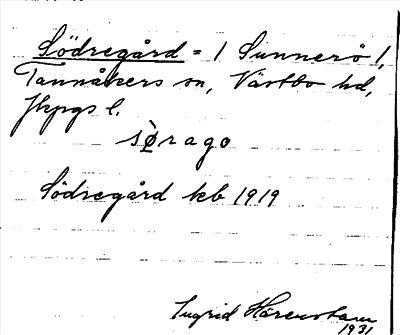 Södregård = 1 Sunnerö 1,
Tannåkers sn, Västbo hd,
Jkpgs l.
sørago
Södregård kb 1919
Ingrid Härenstam
1931